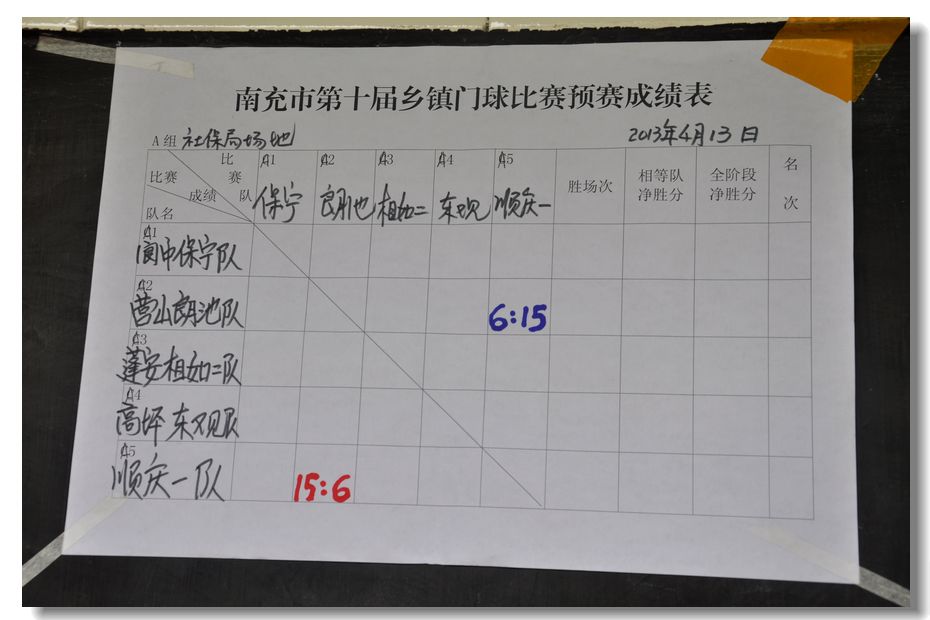 南充市第十届乡镇门球比赛预赛成绩表
A组 社保局场地 2013年4月13日
比赛 成绩 比赛队 队名 A1 保宁 A2 良朗池 A3 相如二 A4 东观 A5 顺庆一 胜场次 相等队净胜分 全阶段净胜分 名次
A1 阆中保宁队
A2 营山朗池队 6:15
A3 蓬安相如二队
A4 高坪东观队
A5 顺庆一队 15:6